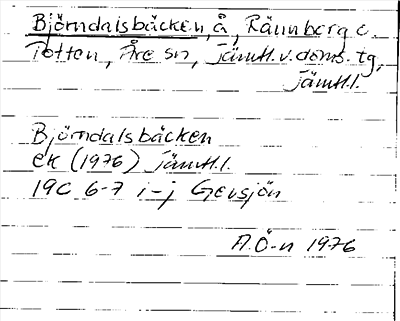 Björndalsbäcken, å, Rännberg o.
Totten, Åre sn, Jämtl.v.doms.tg,
Jämtl.l.
Björndalsbäcken
ek (1976) Jämtl.l.
19C 6-7 i-j Gevsjön
A.Ö-n 1976